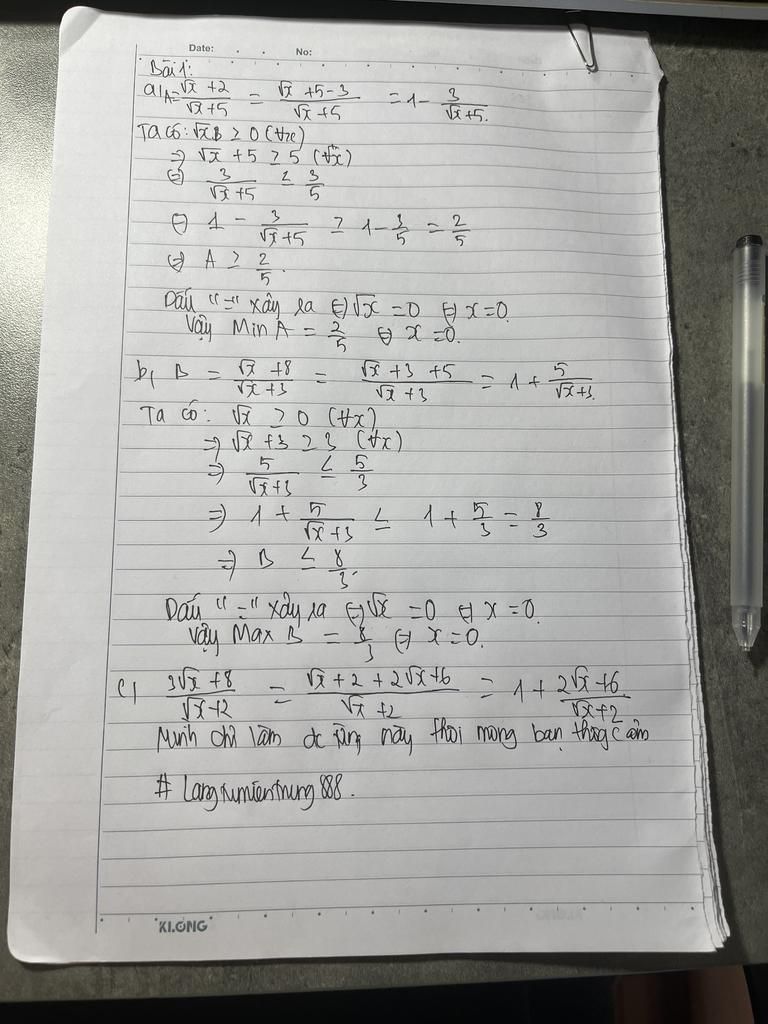 Date: . . No:
Bài 1:
a, A = \frac{√x + 2}{√x + 5} = \frac{√x + 5 - 3}{√x + 5} = 1 - \frac{3}{√x + 5}.
Ta có: √x ≥ 0 (∀x)
⇒ √x + 5 ≥ 5 (∀x)
⇔ \frac{3}{√x + 5} ≤ \frac{3}{5}
⇔ 1 - \frac{3}{√x + 5} ≥ 1 - \frac{3}{5} = \frac{2}{5}
⇔ A ≥ \frac{2}{5}.
Dấu "=" xảy ra ⇔ √x = 0 ⇔ x = 0.
Vậy Min A = \frac{2}{5} ⇔ x = 0.
b, B = \frac{√x + 8}{√x + 3} = \frac{√x + 3 + 5}{√x + 3} = 1 + \frac{5}{√x + 3}.
Ta có: √x ≥ 0 (∀x)
⇒ √x + 3 ≥ 3 (∀x)
⇒ \frac{5}{√x + 3} ≤ \frac{5}{3}
⇒ 1 + \frac{5}{√x + 3} ≤ 1 + \frac{5}{3} = \frac{8}{3}
⇒ B ≤ \frac{8}{3}.
Dấu "=" xảy ra ⇔ √x = 0 ⇔ x = 0.
Vậy Max B = \frac{8}{3} ⇔ x = 0.
c, \frac{3√x + 8}{√x + 2} = \frac{√x + 2 + 2√x + 6}{√x + 2} = 1 + \frac{2√x + 6}{√x + 2}
Mình chỉ làm dc từng này thôi mong bạn thông cảm
# Langtumientrung888.
KLONG